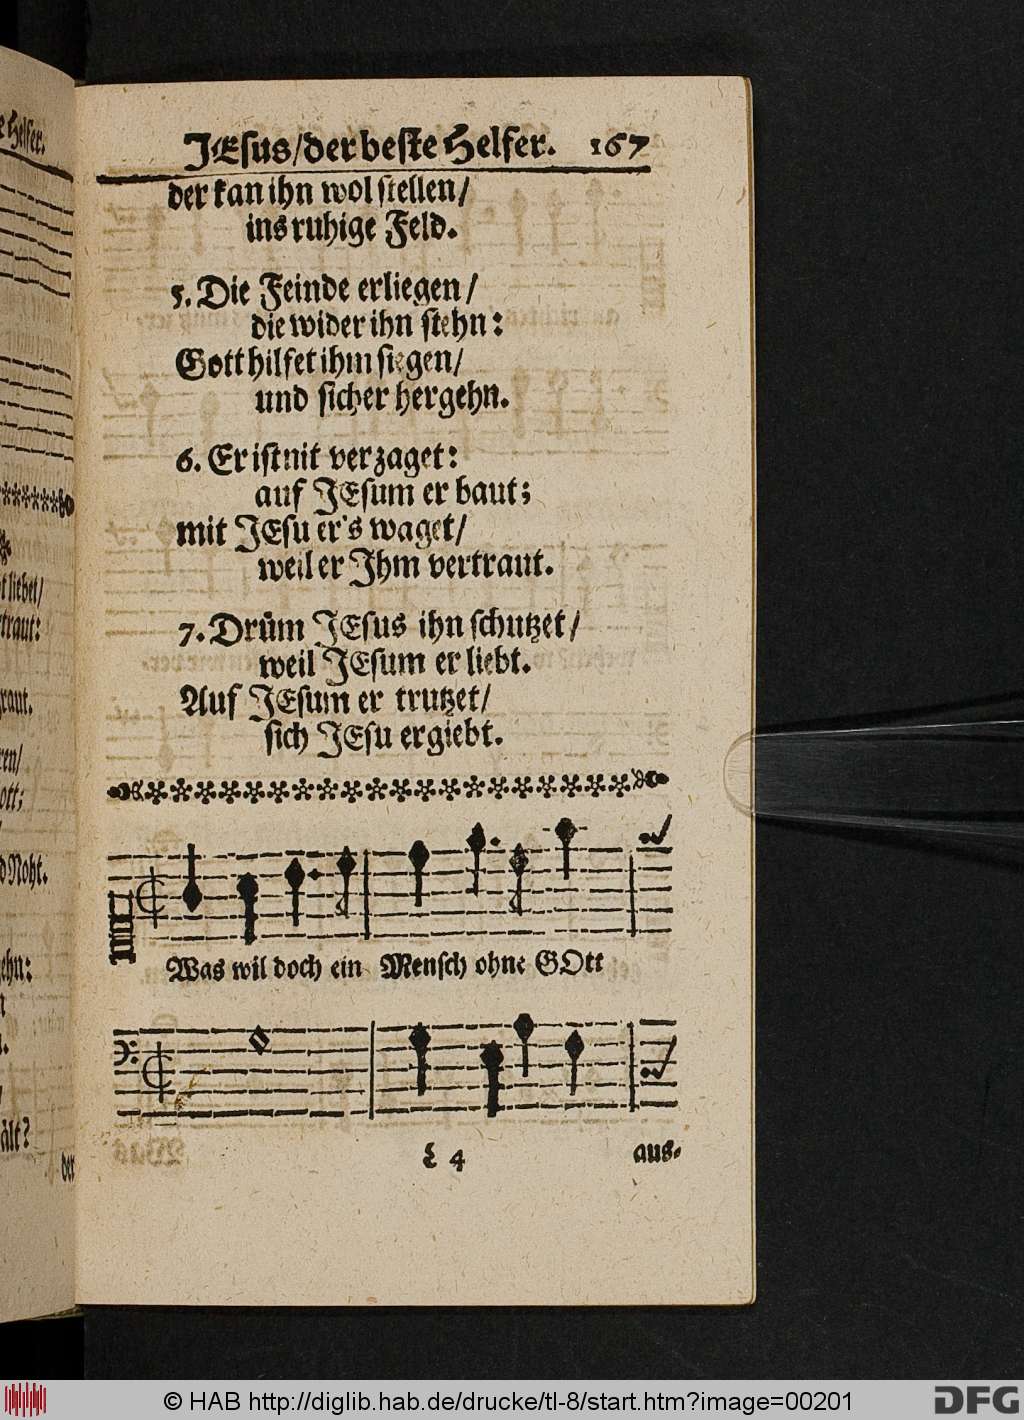 JEsus/der beste Helfer. 167
der kan ihn wol stellen/
ins ruhige Feld.
5. Die Feinde erliegen/
die wider ihn stehn:
Gott hilfet ihm siegen/
und sicher hergehn.
6. Er ist nit verzaget:
auf JEsum er baut;
mit JEsu er's waget/
weil er Ihm vertraut.
7. Drüm JEsus ihn schutzet/
weil JEsum er liebt.
Auf JEsum er trutzet/
sich JEsu ergiebt.
Was wil doch ein Mensch ohne GOtt
L 4 aus-
© HAB http://diglib.hab.de/drucke/tl-8/start.htm?image=00201
DFG